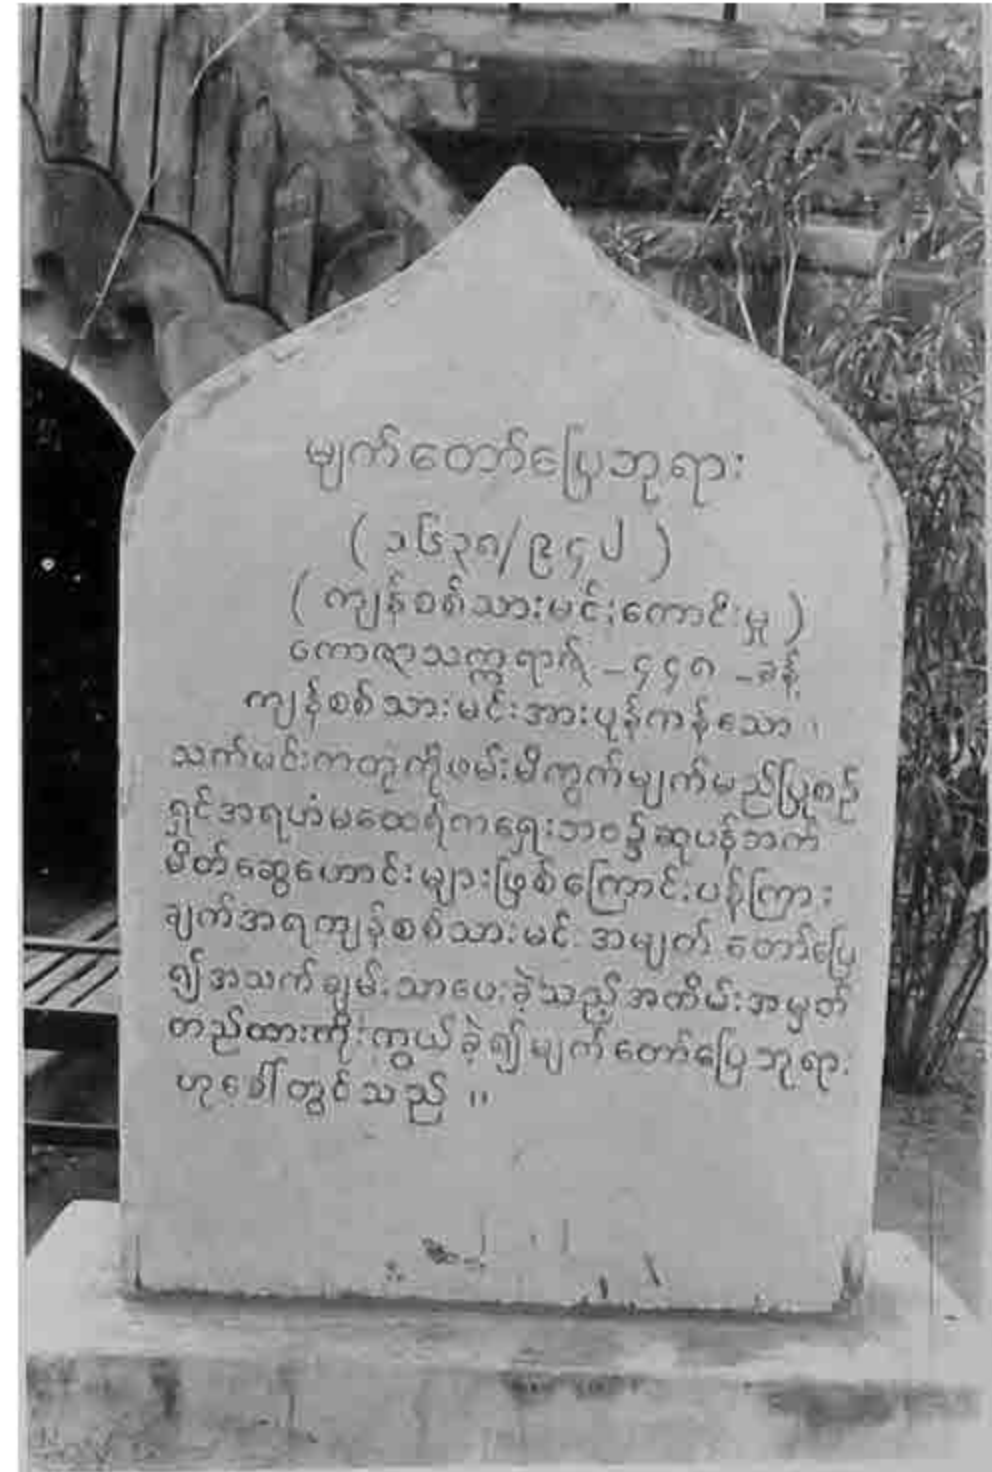 မျက်တော်ပြေဘုရား
( ၁၆၃၈/၉၄၂ )
( ကျန်စစ်သားမင်းကောင်းမှု )
ကောဇာသက္ကရာဇ် - ၄၄၈ - ခန့်
ကျန်စစ်သားမင်းအားပုန်ကန်သော ၊
သက်မင်းကတုကိုဖမ်းမိကွက်မျက်မည်ပြုစဉ်
ရှင်အရဟံမထေရ်ကရှေးဘဝ၌ဆုပန်ဘက်
မိတ်ဆွေဟောင်းများဖြစ်ကြောင်းပန်ကြား
ချက်အရကျန်စစ်သားမင်း အမျတ် တော်ပြေ
၍အသက်ချမ်းသာပေးခဲ့သည့်အထိမ်းအမှတ်
တည်ထားကိုးကွယ်ခဲ့၍မျက်တော်ပြေဘုရား
ဟုခေါ်တွင်သည် ။